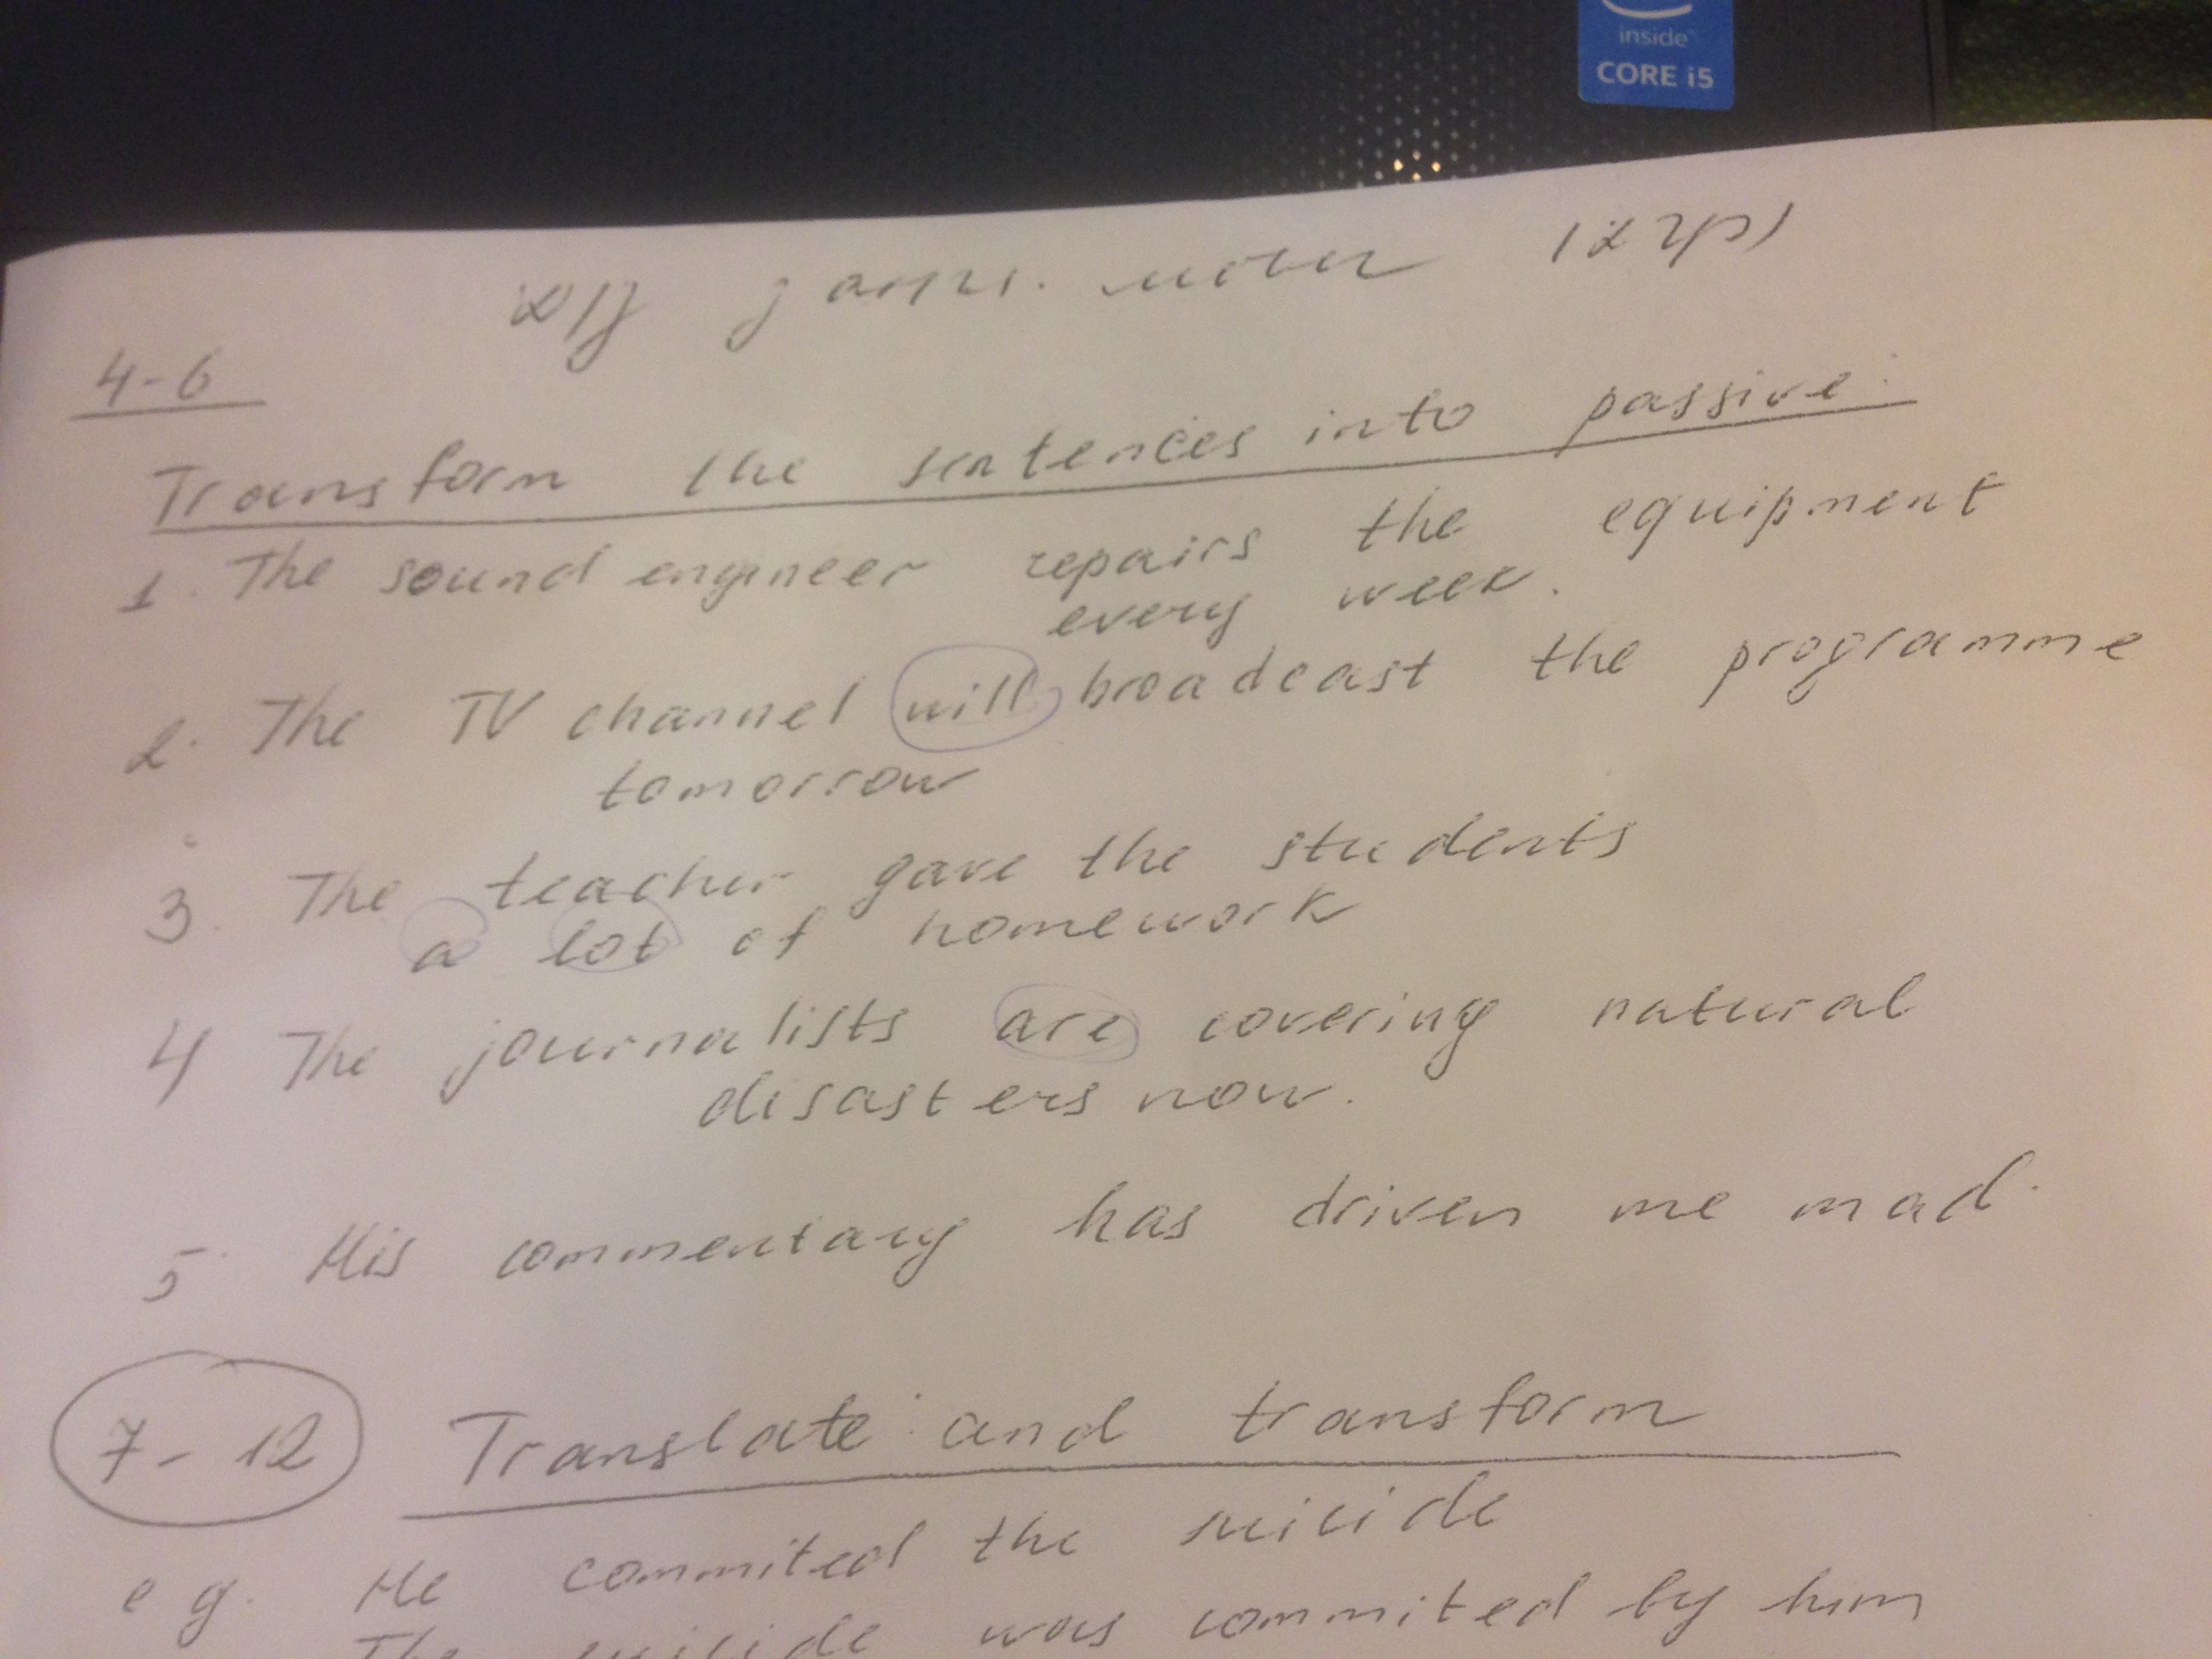 inside
CORE i5
Д/З з англ. мови (2 гр)
4-6
Transform the sentences into passive:
1. The sound engineer repairs the equipment
every week.
2. The TV channel will broadcast the programme
tomorrow
3. The teacher gave the students
a lot of homework
4 The journalists are covering natural
disasters now.
5. His commentary has driven me mad.
7-12 Translate and transform
e.g. He commited the suicide
The suicide was commited by him